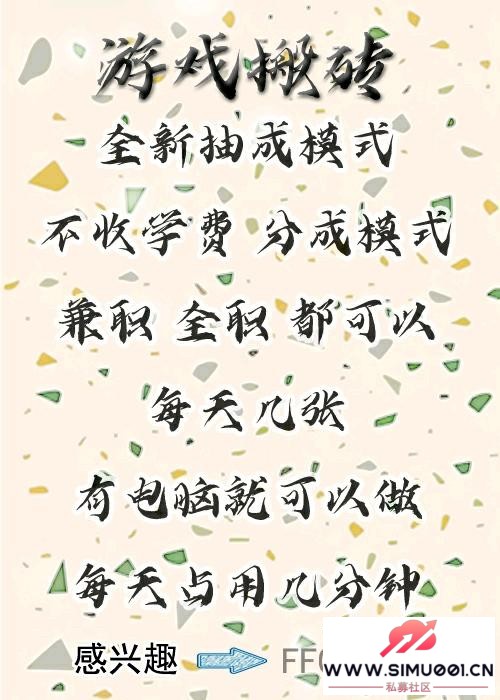 游戏搬砖
全新抽成模式
不收学费 分成模式
兼职 全职 都可以
每天几张
有电脑就可以做
每天占用几分钟
感兴趣 FF
WWW.SIMU001.CN
私募社区